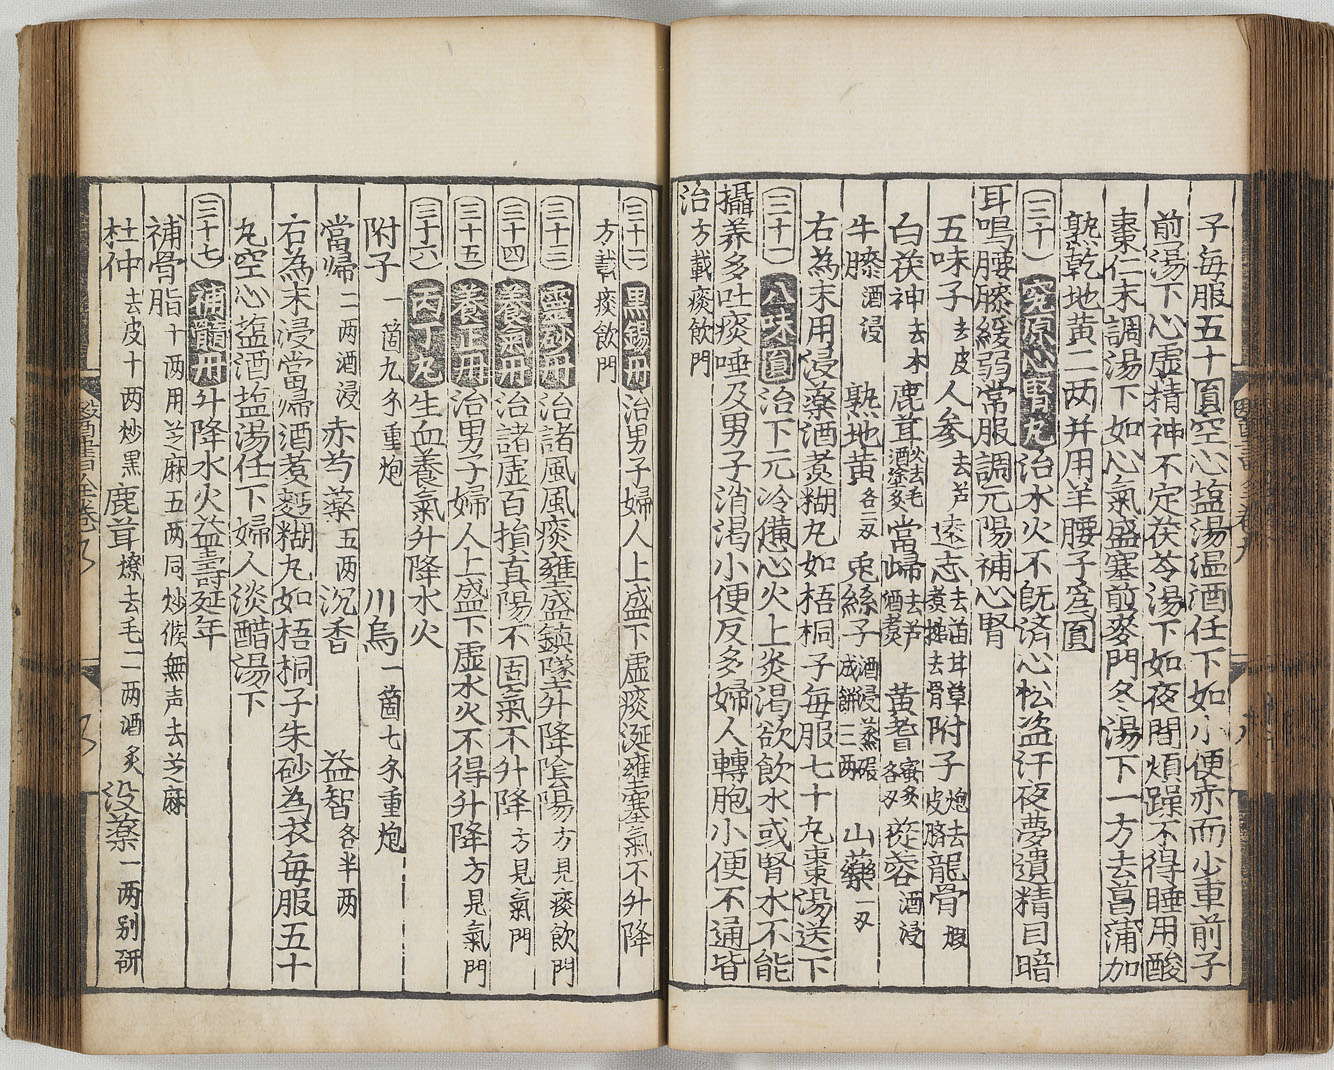 子每服五十圓空心塩湯温酒任下如小便赤而少車前子
前湯下心虛精神不定茯苓湯下如夜間煩躁不得睡用酸
棗仁末調湯下如心氣盛塞煎麥門冬湯下一方去菖蒲加
熟乾地黄二两并用羊腰子為圓
(三十) 究原心腎丸 治水火不既済心忪盗汗夜夢遺精目暗
耳鳴腰膝緩弱常服調元陽補心腎
五味子去皮人參去芦遠志去苗甘草煮搥去骨附子炮去皮臍龍骨煅
白茯神去木鹿茸火去毛酒塗炙當歸去芦酒煮黄耆蜜炙各二两蓯蓉酒浸
牛膝酒浸熟地黄各二两兎絲子酒浸蒸碾成餅三两山藥一两
右為末用浸藥酒煮糊丸如梧桐子每服七十丸棗湯送下
(三十一) 八味圓 治下元冷憊心火上炎渴欲飲水或腎水不能
攝养多吐痰唾及男子消渴小便反多婦人轉胞小便不通皆
治方載痰飲門
(三十二) 黒錫丹 治男子婦人上盛下虛痰涎壅塞氣不升降
方載痰飲門
(三十三) 靈砂丹 治諸風風痰壅盛鎮墜升降陰陽方見痰飲門
(三十四) 養氣丹 治諸虛百損真陽不固氣不升降方見氣門
(三十五) 養正丹 治男子婦人上盛下虛水火不得升降方見氣門
(三十六) 丙丁丸 生血養氣升降水火
附子一箇九錢重炮川烏一箇七錢重炮
當歸二两酒浸赤芍藥五两沉香益智各半两
右為末浸當歸酒煮麪糊丸如梧桐子朱砂為衣每服五十
丸空心塩酒塩湯任下婦人淡醋湯下
(三十七) 補髓丹 升降水火益壽延年
補骨脂十两用芝麻五两同炒候無声去芝麻
杜仲去皮十两炒黒鹿茸燎去毛二两酒炙没藥一两别研